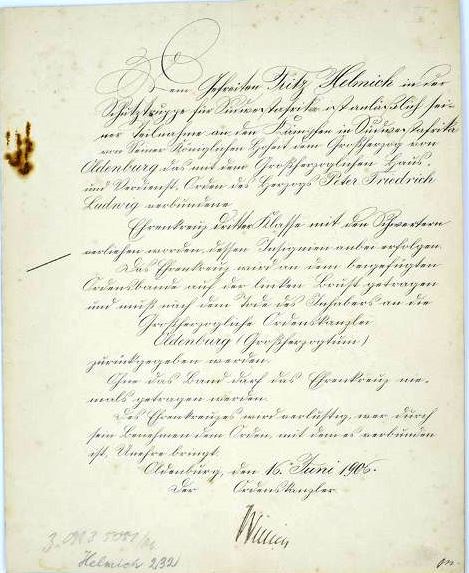 Dem Gefreiten Fritz Helmich in der
Schutztruppe für Südwestafrika ist anläßlich sei-
ner Teilnahme an den Kämpfen in Südwestafrika
von Seiner Königlichen Hoheit dem Großherzog von
Oldenburg das mit dem Großherzoglichen Haus-
und Verdienst-Orden des Herzogs Peter Friedrich
Ludwig verbundene
Ehrenkreuz dritter Klasse mit den Schwertern
verliehen worden, dessen Insignien anbei erfolgen.
Das Ehrenkreuz wird an dem beigefügten
Ordensbande auf der linken Brust getragen
und muß nach dem Tode des Inhabers an die
Großherzogliche Ordenskanzlei
Oldenburg (Großherzogtum)
zurückgegeben werden.
Ohne das Band darf das Ehrenkreuz nie-
mals getragen werden.
Des Ehrenkreuzes wird verlustig, wer durch
sein Benehmen dem Orden, mit dem es verbunden
ist, Unehre bringt.
Oldenburg, den 16. Juni 1906.
Der Ordenskanzler
Helmich 232